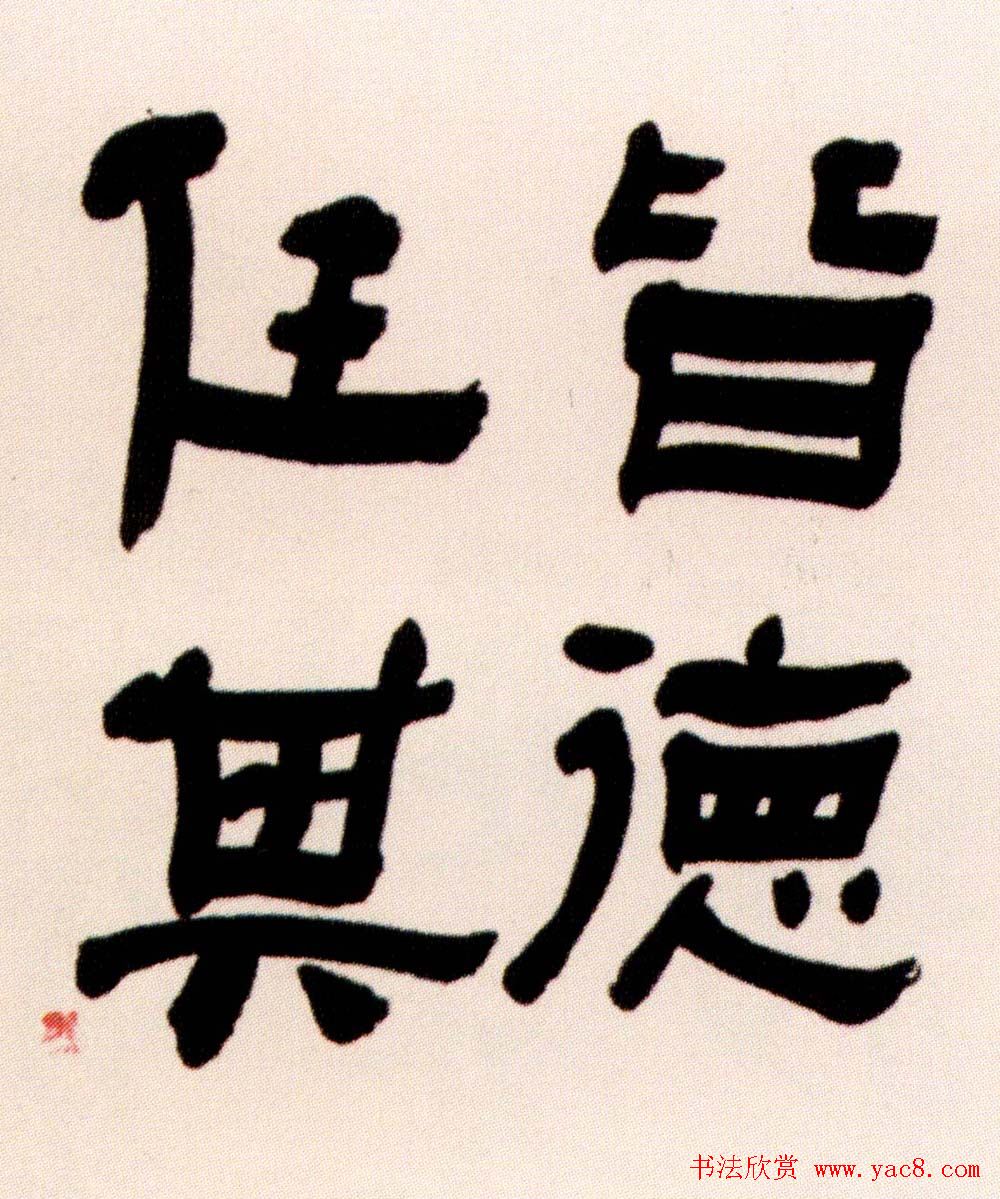 皆德
任其
书法欣赏 www.yac8.com